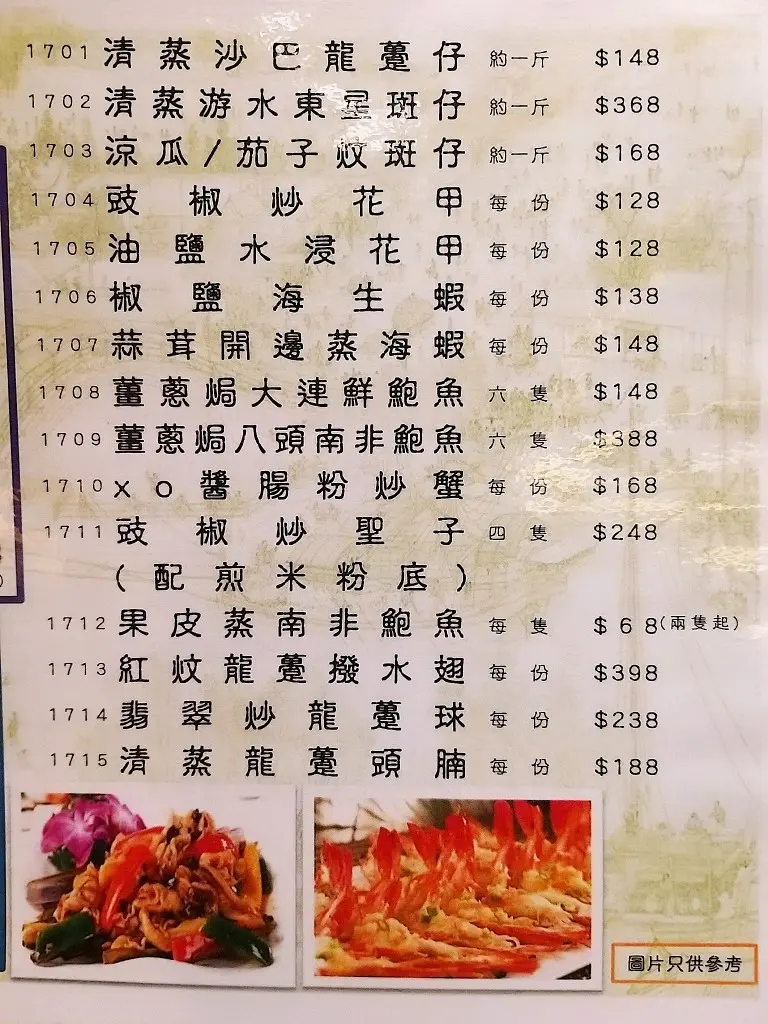 1701 清蒸沙巴龍躉仔 約一斤 $148
1702 清蒸游水東星斑仔 約一斤 $368
1703 涼瓜/茄子炆斑仔 約一斤 $168
1704 豉椒炒花甲 每份 $128
1705 油鹽水浸花甲 每份 $128
1706 椒鹽海生蝦 每份 $138
1707 蒜茸開邊蒸海蝦 每份 $148
1708 薑蔥焗大連鮮鮑魚 六隻 $148
1709 薑蔥焗八頭南非鮑魚 六隻 $388
1710 xo醬腸粉炒蟹 每份 $168
1711 豉椒炒聖子 四隻 $248
(配煎米粉底)
1712 果皮蒸南非鮑魚 每隻 $68(兩隻起)
1713 紅炆龍躉撥水翅 每份 $398
1714 翡翠炒龍躉球 每份 $238
1715 清蒸龍躉頭腩 每份 $188
圖片只供參考